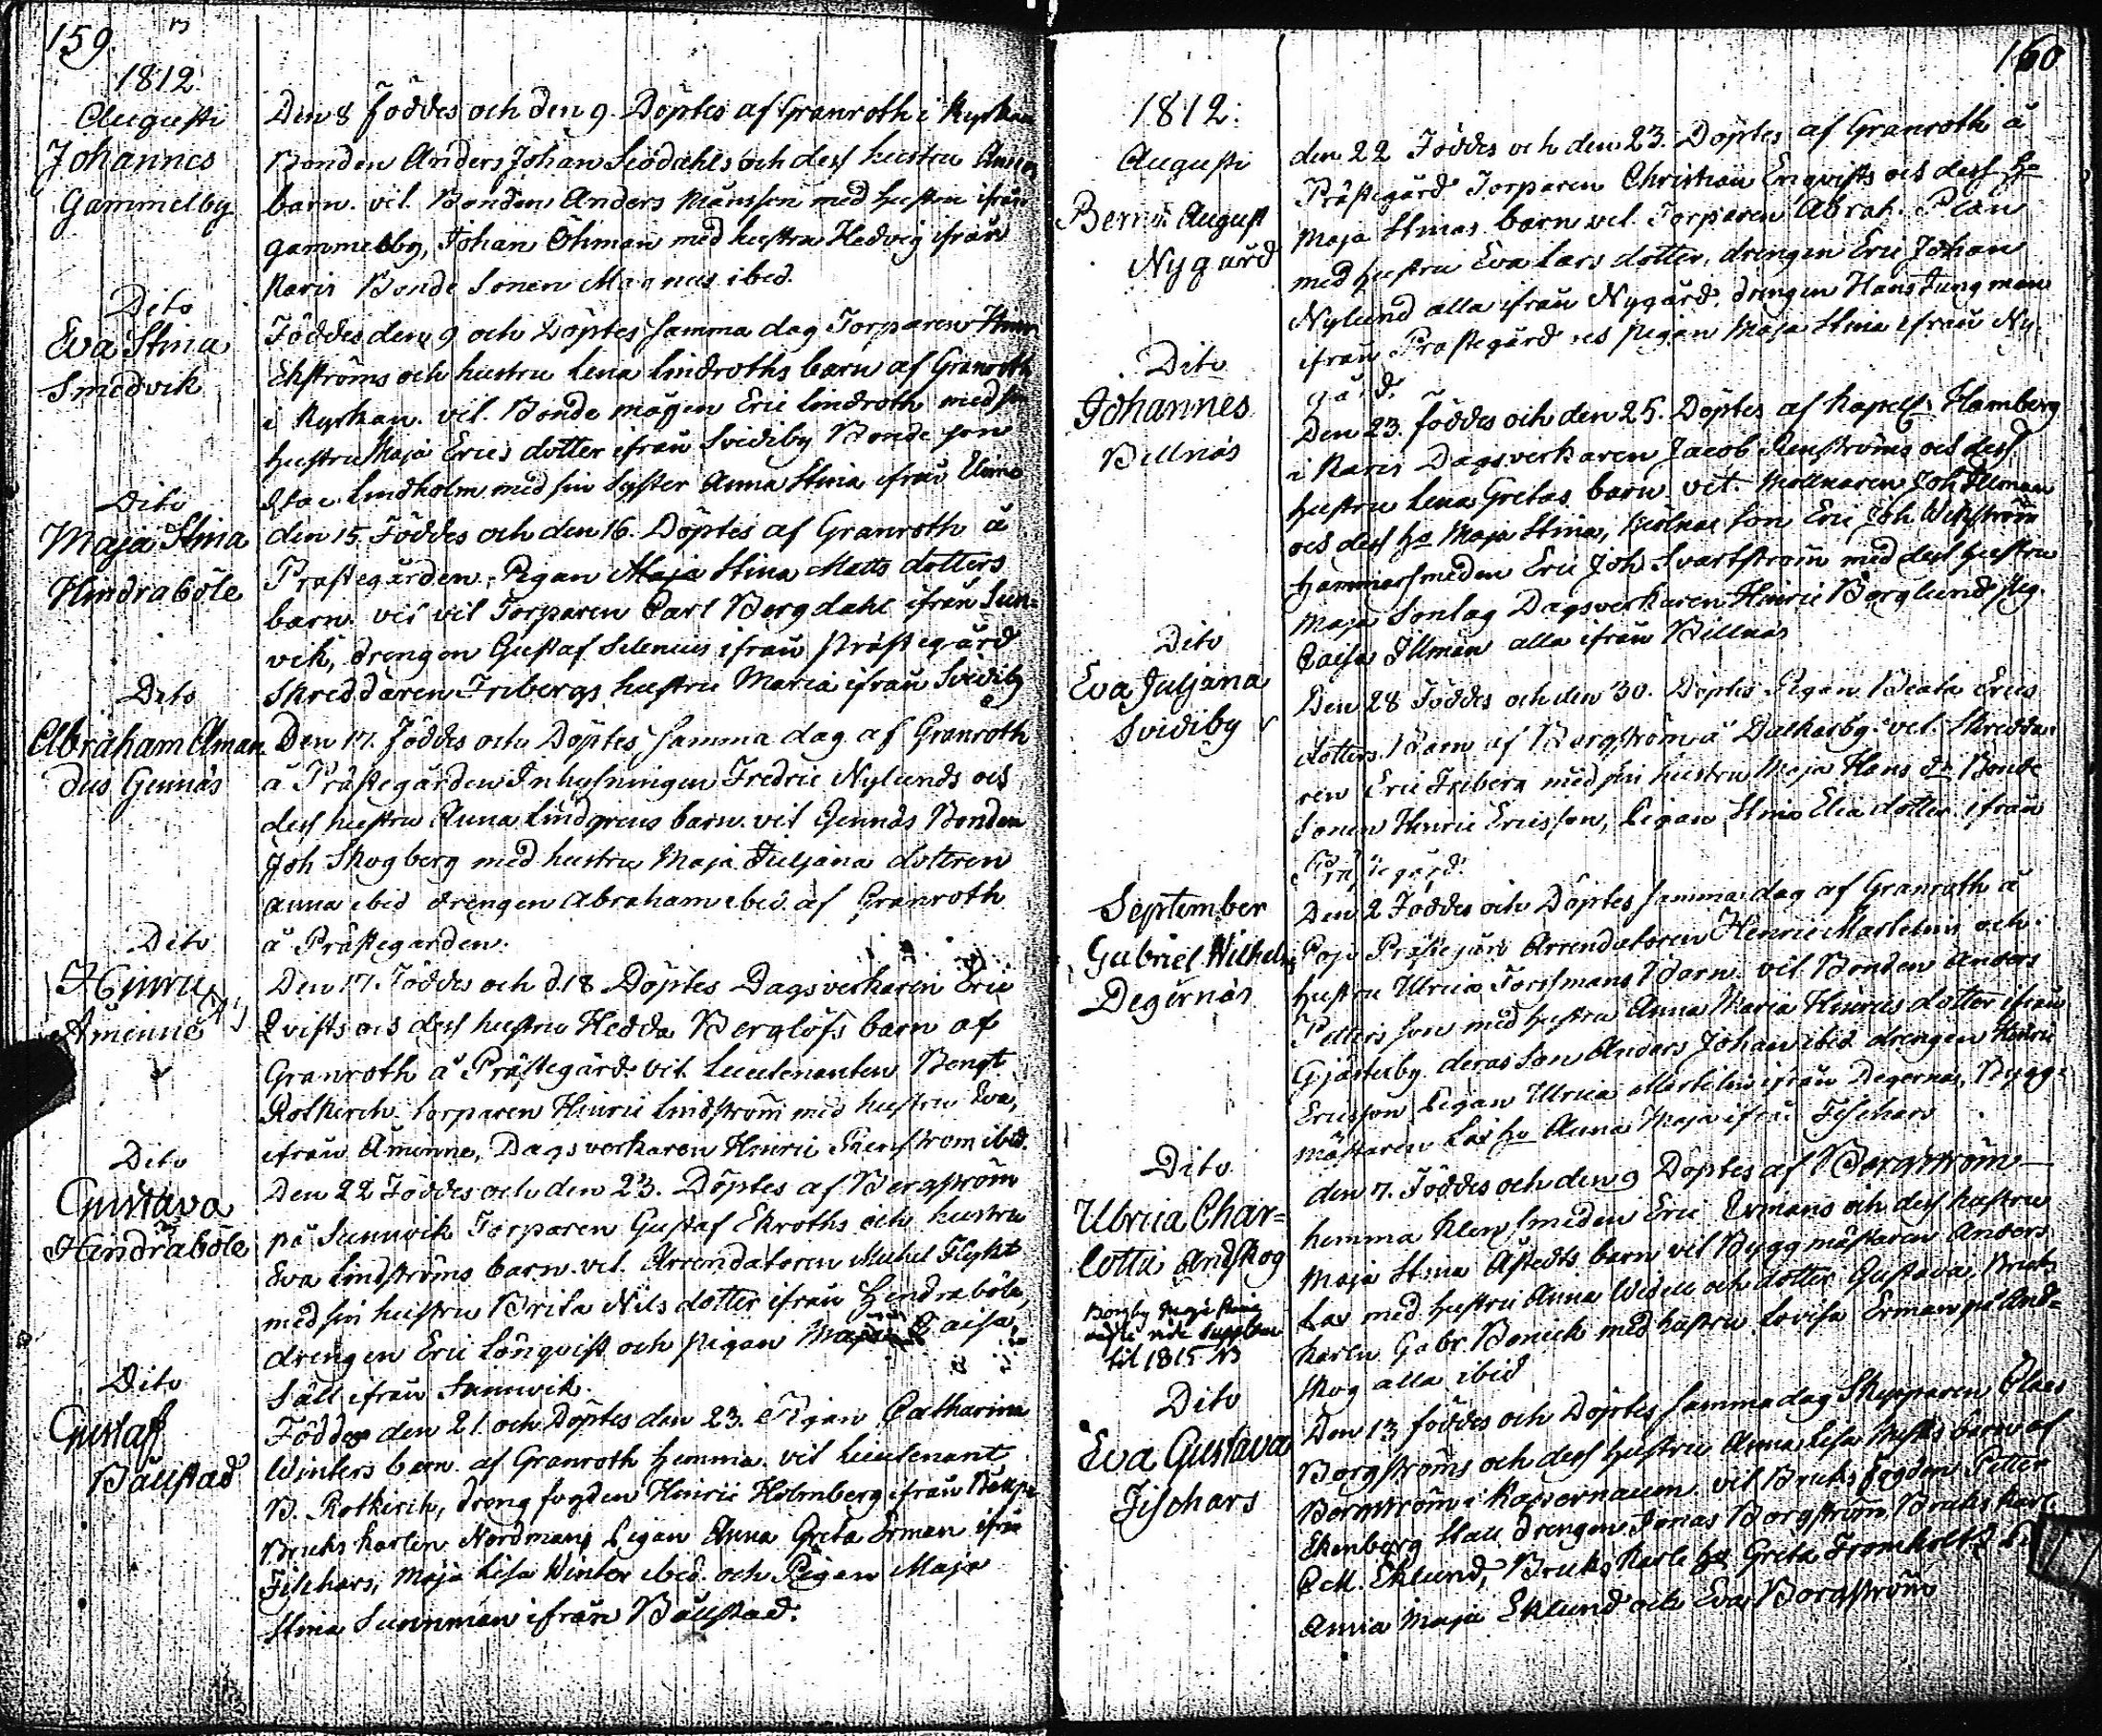 159.
1812
Augusti
Johannes
Gammelby
Den 8 Föddes och den 9. Döptes af Granroth i Kyrkan
Bonden Anders Johan Siödahls och dess hustru Anna
barn. vit. Bonden Anders Månsson med hustru ifrån
gammelby, Johan Öhman med hustru Hedvig ifrån
Karis Bonde Sonen Magnus ibid.
Dito
Eva Stina
Smedvik
Föddes den 9 och Döptes samma dag Torparen
Ekströms och hustru Lena Lindroths barn af Granroth
i Kyrkan. vit. Bonde mågen Eric Lindroth med sin
hustru Maja Erics dotter ifrån Svidiby Bonde son
Isac Lindholm med sin Syster Anna Stina ifrån
Dito
Maja Stina
Hindraböle
den 15 Föddes och den 16. Döptes af Granroth å
Prästegården. Pigan Maja Stina Matts dotters
barn. vit vit Torparen Carl Bergdahl ifrån Sun-
vik, drengen Gustaf Selenius ifrån Prästegård
Skreddaren Fribergs hustru Maria ifrån Svidiby
Dito
Abraham Aman
dus Gennäs
Den 17. Föddes och Döptes samma dag af Granroth
å Prästegården Inhysningen Fredric Nylunds och
dess hustru Anna Lindgrens barn. vit Gennäs Bonden
Joh Skogberg med hustru Maja Juljana dottren
Anna ibid drengen Abraham ibid. af Granroth
å Prästegården.
Dito
Hinric
Åminne
Den 17. Föddes och d. 18 Döptes Dagsverkarin Eric
Qvists och dess hustru Hedda Berglöfs barn af
Granroth å Prästegård. vit. Lieutenanten Bengt
Rotkirch torparen Hinric Lindström med hustru Eva,
ifrån Åminne, Dagsverkaren Hinric ibid.
Dito
Gustava
Hindraböle
Den 22 Föddes och den 23. Döptes af Bergström
på Sunnvik Torparen Gustaf Ekroths och hustru
Eva Lindströms barn. vit. Arrendatoren Michel Flykt
med sin hustru Brita Nils dotter ifrån Hindraböle,
drengen Eric Lönqvist och pigan Caisa
Säll ifrån Sunnvik.
Dito
Gustaff
Bällstad
Föddes den 21 och Döptes den 23. Pigan Catharina
Winters barn. af Granroth hemma. vit Lieutenant
B. Rotkirch, dreng fogden Hinric Holmberg ifrån
Bruks karlen Nordman, Pigan Anna Greta Erman ifrån
Fischars, Maja Lisa Winter ibid. och Pigan Maja
Stina Sunnman ifrån Bällstad.
160
1812.
Augusti
Bernd. August
Nygård
den 22 Föddes och den 23. Döptes af Granroth å
Prästegård Torparen Christian Enqvists och dess Ho
Maja Stinas barn vit. Torparen Abrah. Plan
med hustru Eva Lars dotter, drengen Eric Johan
Nylund alla ifrån Nygård, drengen Hans Jungman
ifrån Prästegård och pigan Maja Stina ifrån Ny-
gård.
Dito
Johannes
Billnäs
Den 23. föddes och den 25. Döptes af Hamberg
i Karis Dagsverkaren Jacob Renströms och dess
hustru Lena Gretas barn. vit. Möllnaren Joh Illman
och dess ho Maja Stina, son Eric Joh
Hammarsmeden Eric Joh Svartström med dess hustru
Maja Sontag Dagsverkaren Hinric Berglund, Pig.
Caisa Illman alla ifrån Billnäs
Dito
Eva Juljana
Svidiby
Den 28 Föddes och den 30. Döptes Pigan Beata Erics
dotters Barn af Bergström å Dalkarby. vit. Skredda-
ren Eric Friberg med sin hustru Maja Hans dr Bonde
Sonen Hinric Ericsson, Pigan Stina dotter ifrån
Prästegård.
September
Gabriel Wilhelm
Degernäs
Den 2 Föddes och Döptes samma dag af Granroth å
Pojo Prästegård Arrendatoren Henric Martelins och
hustru Ulrica Forssmans Barn. vit. Bonden Anders
Petters son med hustru Anna Maria Hinrics dotter ifrån
Gjästerby deras Son Anders Johan ibid drengen Henric
Ericsson Pigan Ulrica Martelin ifrån Degernäs, Bygg-
mästaren Lax ho Anna Maja ifrån Fischars
Dito
Ulrica Char=
lotta Andskog
den 7. Föddes och den 9 Döptes af Bergström
hemma Klensmeden Eric Ermans och dess hustru
Maja Stina Åstedts barn vit Byggmästaren Anders
Lax med hustru Anna och dotter Gustava, Bruks
karlen Gabr. Bonick med hustru Lovisa Erman på And=
skog alla ibid
til 1815
Dito
Eva Gustava
Fischars
Den 13 föddes och Döptes samma dag Skepparen Claes
Bergströms och dess hustru Anna Lisa barn af
Bergström i Kapernaum. vit Bruks fogden Petter
Ekenberg Stall drengen Jonas Bergström, Bruks karl.
Eklund, Bruks karls ho Greta Fromholtz
Anna Maja Eklund och Eva Bergström